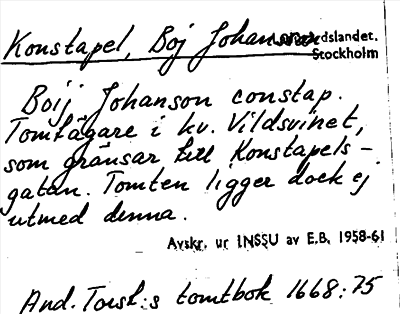 Konstapel, Boj Johansson
rdslandet.
Stockholm
Boij Johanson constap.
Tomtägare i kv. Vildsvinet,
som gränsar till Konstapels-
gatan. Tomten ligger dock ej
utmed denna.
Avskr. ur INSSU av E.B. 1958-61
And. Torst:s tomtbok 1668:75